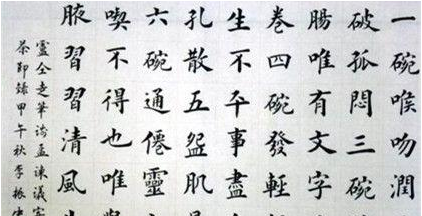 一碗喉吻潤
破孤悶三碗
腸唯有文字
卷四碗發輕
生不平事盡
孔散五碗肌
六碗通僊靈
喫不得也唯
腋習習清風
盧仝走筆謝孟諫議寄
茶節錄甲午秋李振